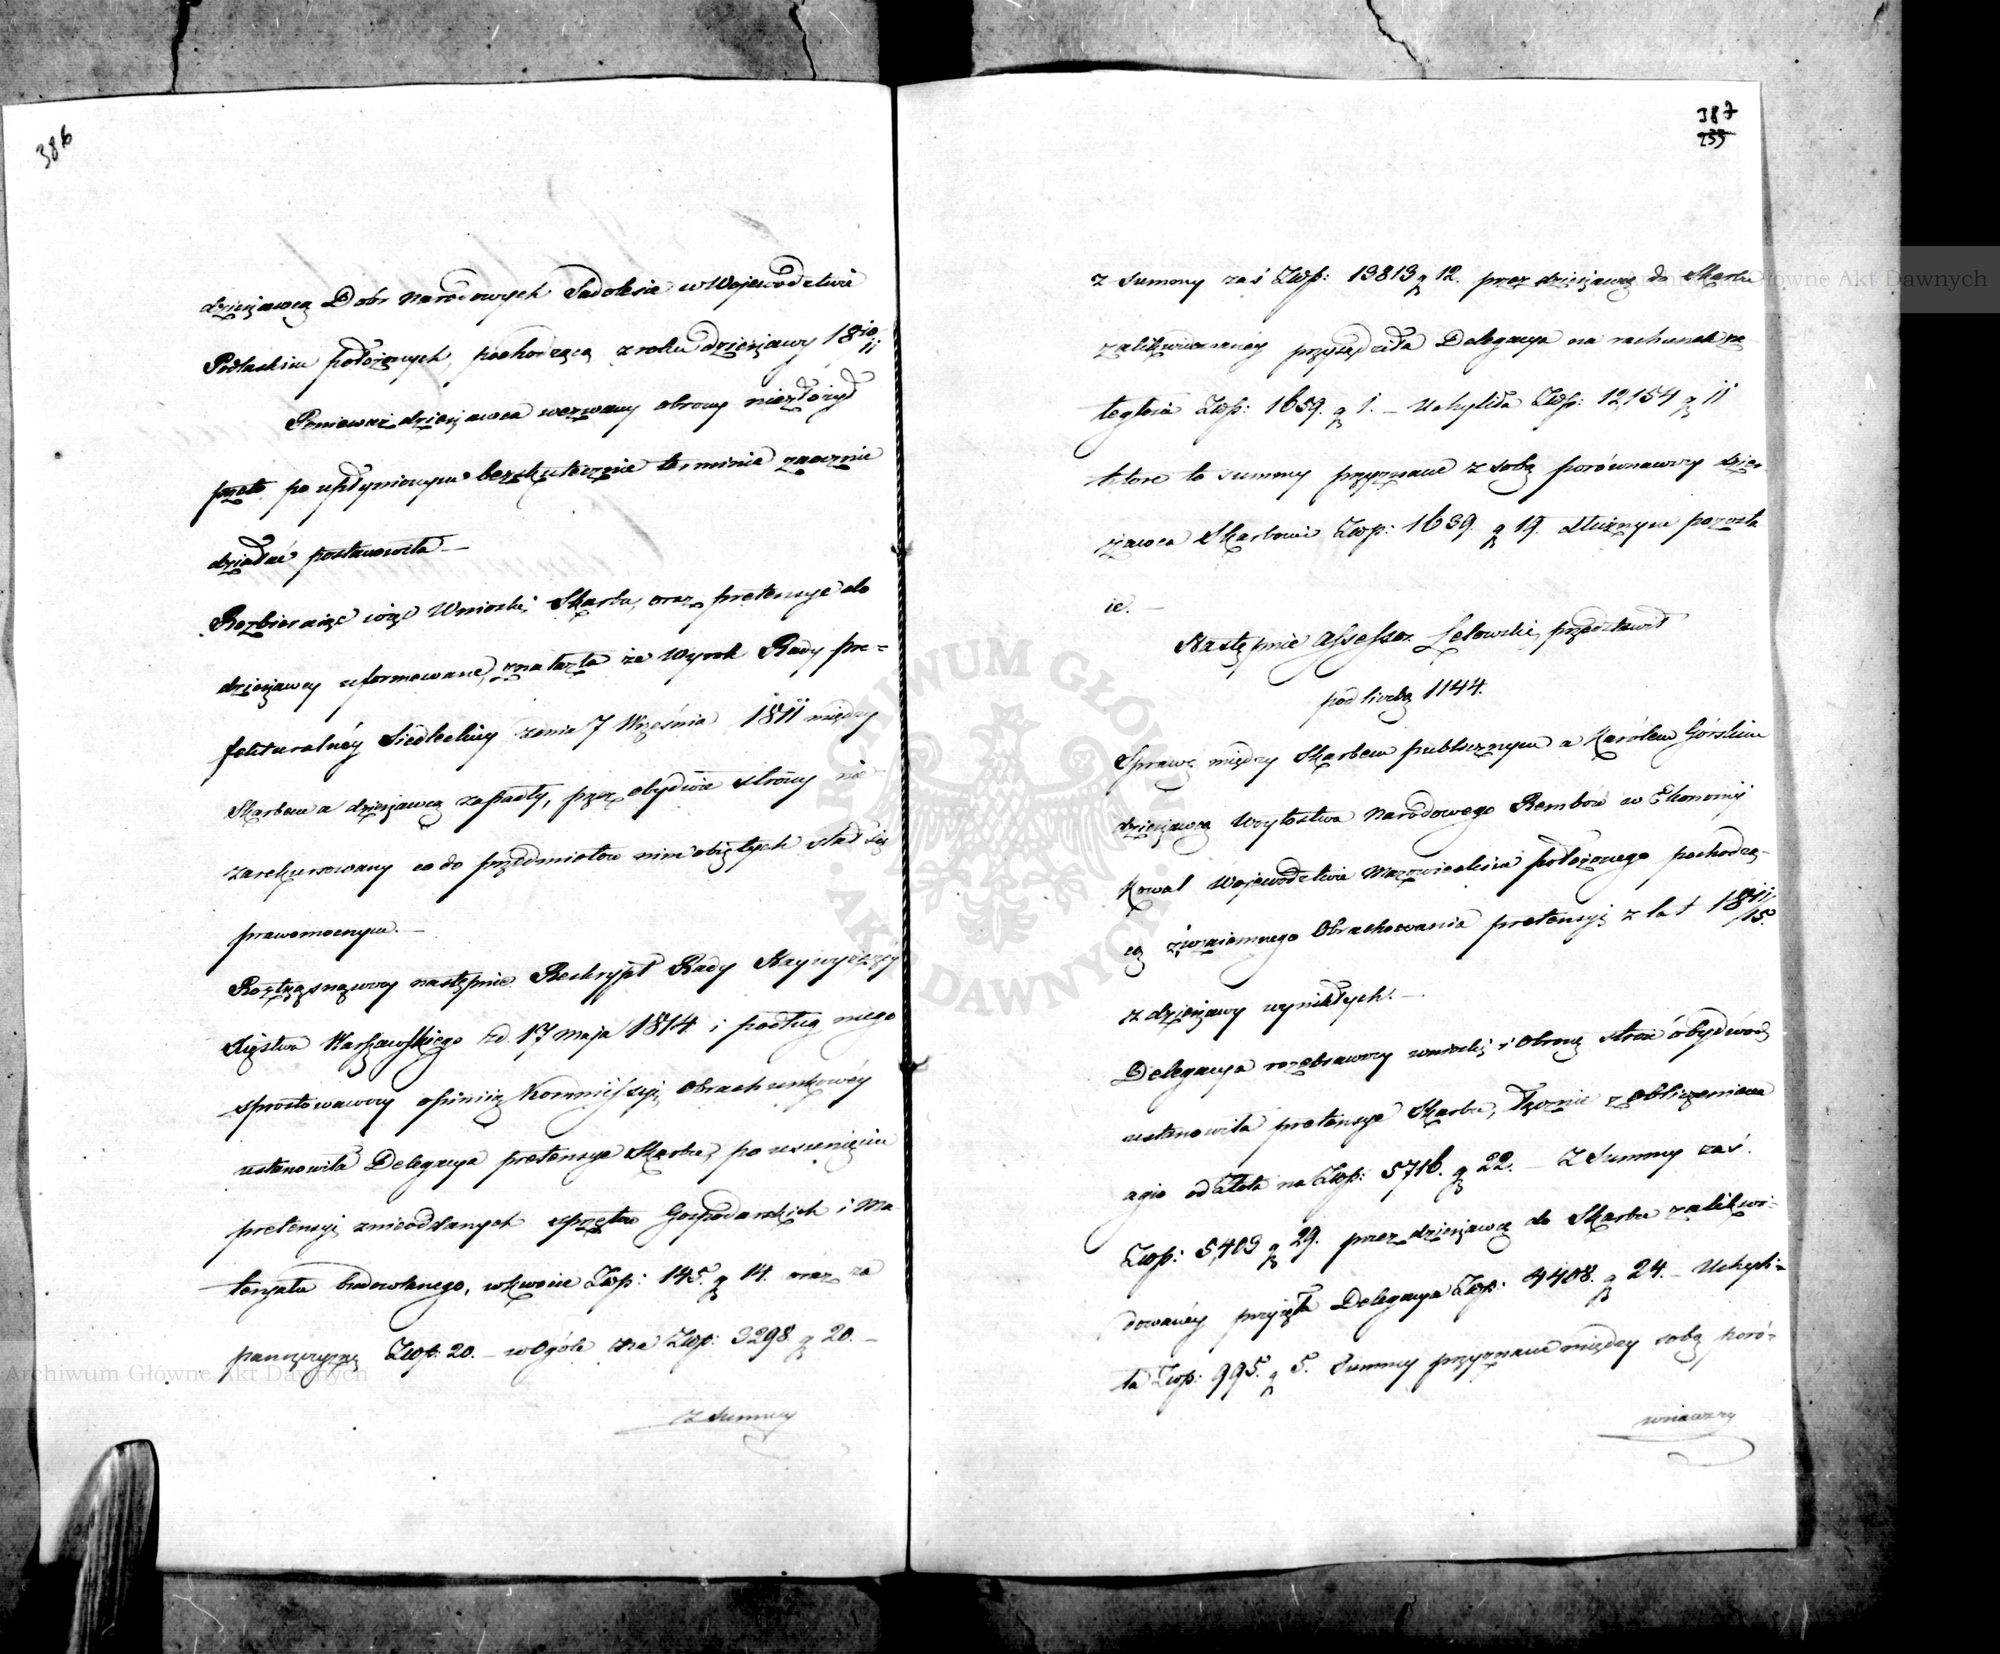 386
dzierżawcą Dobr Narodowych Sadoleśie w Wojewodztwie
Podlaskim położonych, pochodzącą z roku dzierżawy 1810/11
Ponieważ dzierżawca wezwany obrony niezłożył
przeto po upłynionym bezskutecznie terminie zaocznie
działać postanowiła –
Rozbierając więc Wnioski Skarbu, oraz pretensye do
dzierżawcy uformowane, znalazła że Wyrok Rady Pre=
fekturalnéy Siedleckiey z dnia 7 Września 1811 między
Skarbem a dzierżawcą zapadły, przez obydwie strony nie
zarekursowany co do przedmiotów nim objętych stał się
prawomocnym. –
Roztrząsnąwszy następnie Reskrypt Rady Naywyższéy
Xięstwa Warszawskiego z d. 17 Maja 1814 i podług niego
sprostowawszy opinią Kommissyi Obrachunkowey
ustanowiła Delegacya pretensye Skarbu, po usunięciu
pretensyi z nieoddanych sprzętów Gospodarskich i Ma
teryału budowlanego, w kwocie Złłp: 145. g 14. oraz za
pańszczyznę Złłp: 20. – w Ogóle na Złłp: 3298 g 20. –
z Summy
387
233
z Summy zaś Złłp: 13813 g 12. przez dzierżawcę do Skarbu
zalikwidowanéy przysądziła Delegacya na rachunek za
ległości Złłp: 1659. g 1. – Uchyliła Złłp: 12,154 g 11
które to summy przyznane z sobą porównawszy dzier
żawca Skarbowi Złłp: 1639. g 19. dłużnym pozosta
ie. –
Następnie Assessor Lelowski, przedstawił
pod liczbą 1144.
Sprawę między Skarbem publicznym a Karolem Górskim
dzierżawcą Woytostwa Narodowego Rembow w Ekonomij
Kowal Wojewodztwie Mazowieckim położonego pochodzą-
cą z wzaiemnego Obrachowania pretensyi z lat 1811/15
z dzierżawy wynikłych. –
Delegacya rozebrawszy wnioski i Obronę stron obydwóch
ustanowiła pretensye Skarbu, łącznie z obliczeniem
agio od złota na Złłp: 5716. g 22. – Z Summy zaś
Złłp: 5,403 g 29. przez dzierżawcę do Skarbu zalikwi-
dowanéy przyięła Delegacya Złłp: 4408. g 24. – Uchyli=
ła Złłp: 995. g 5. Summy przyznane między sobą poró-
wnawszy
Archiwum Główne Akt Dawnych
Archiwum Główne Akt Dawnych
ARCHIWUM GŁÓWNE
AKT DAWNYCH